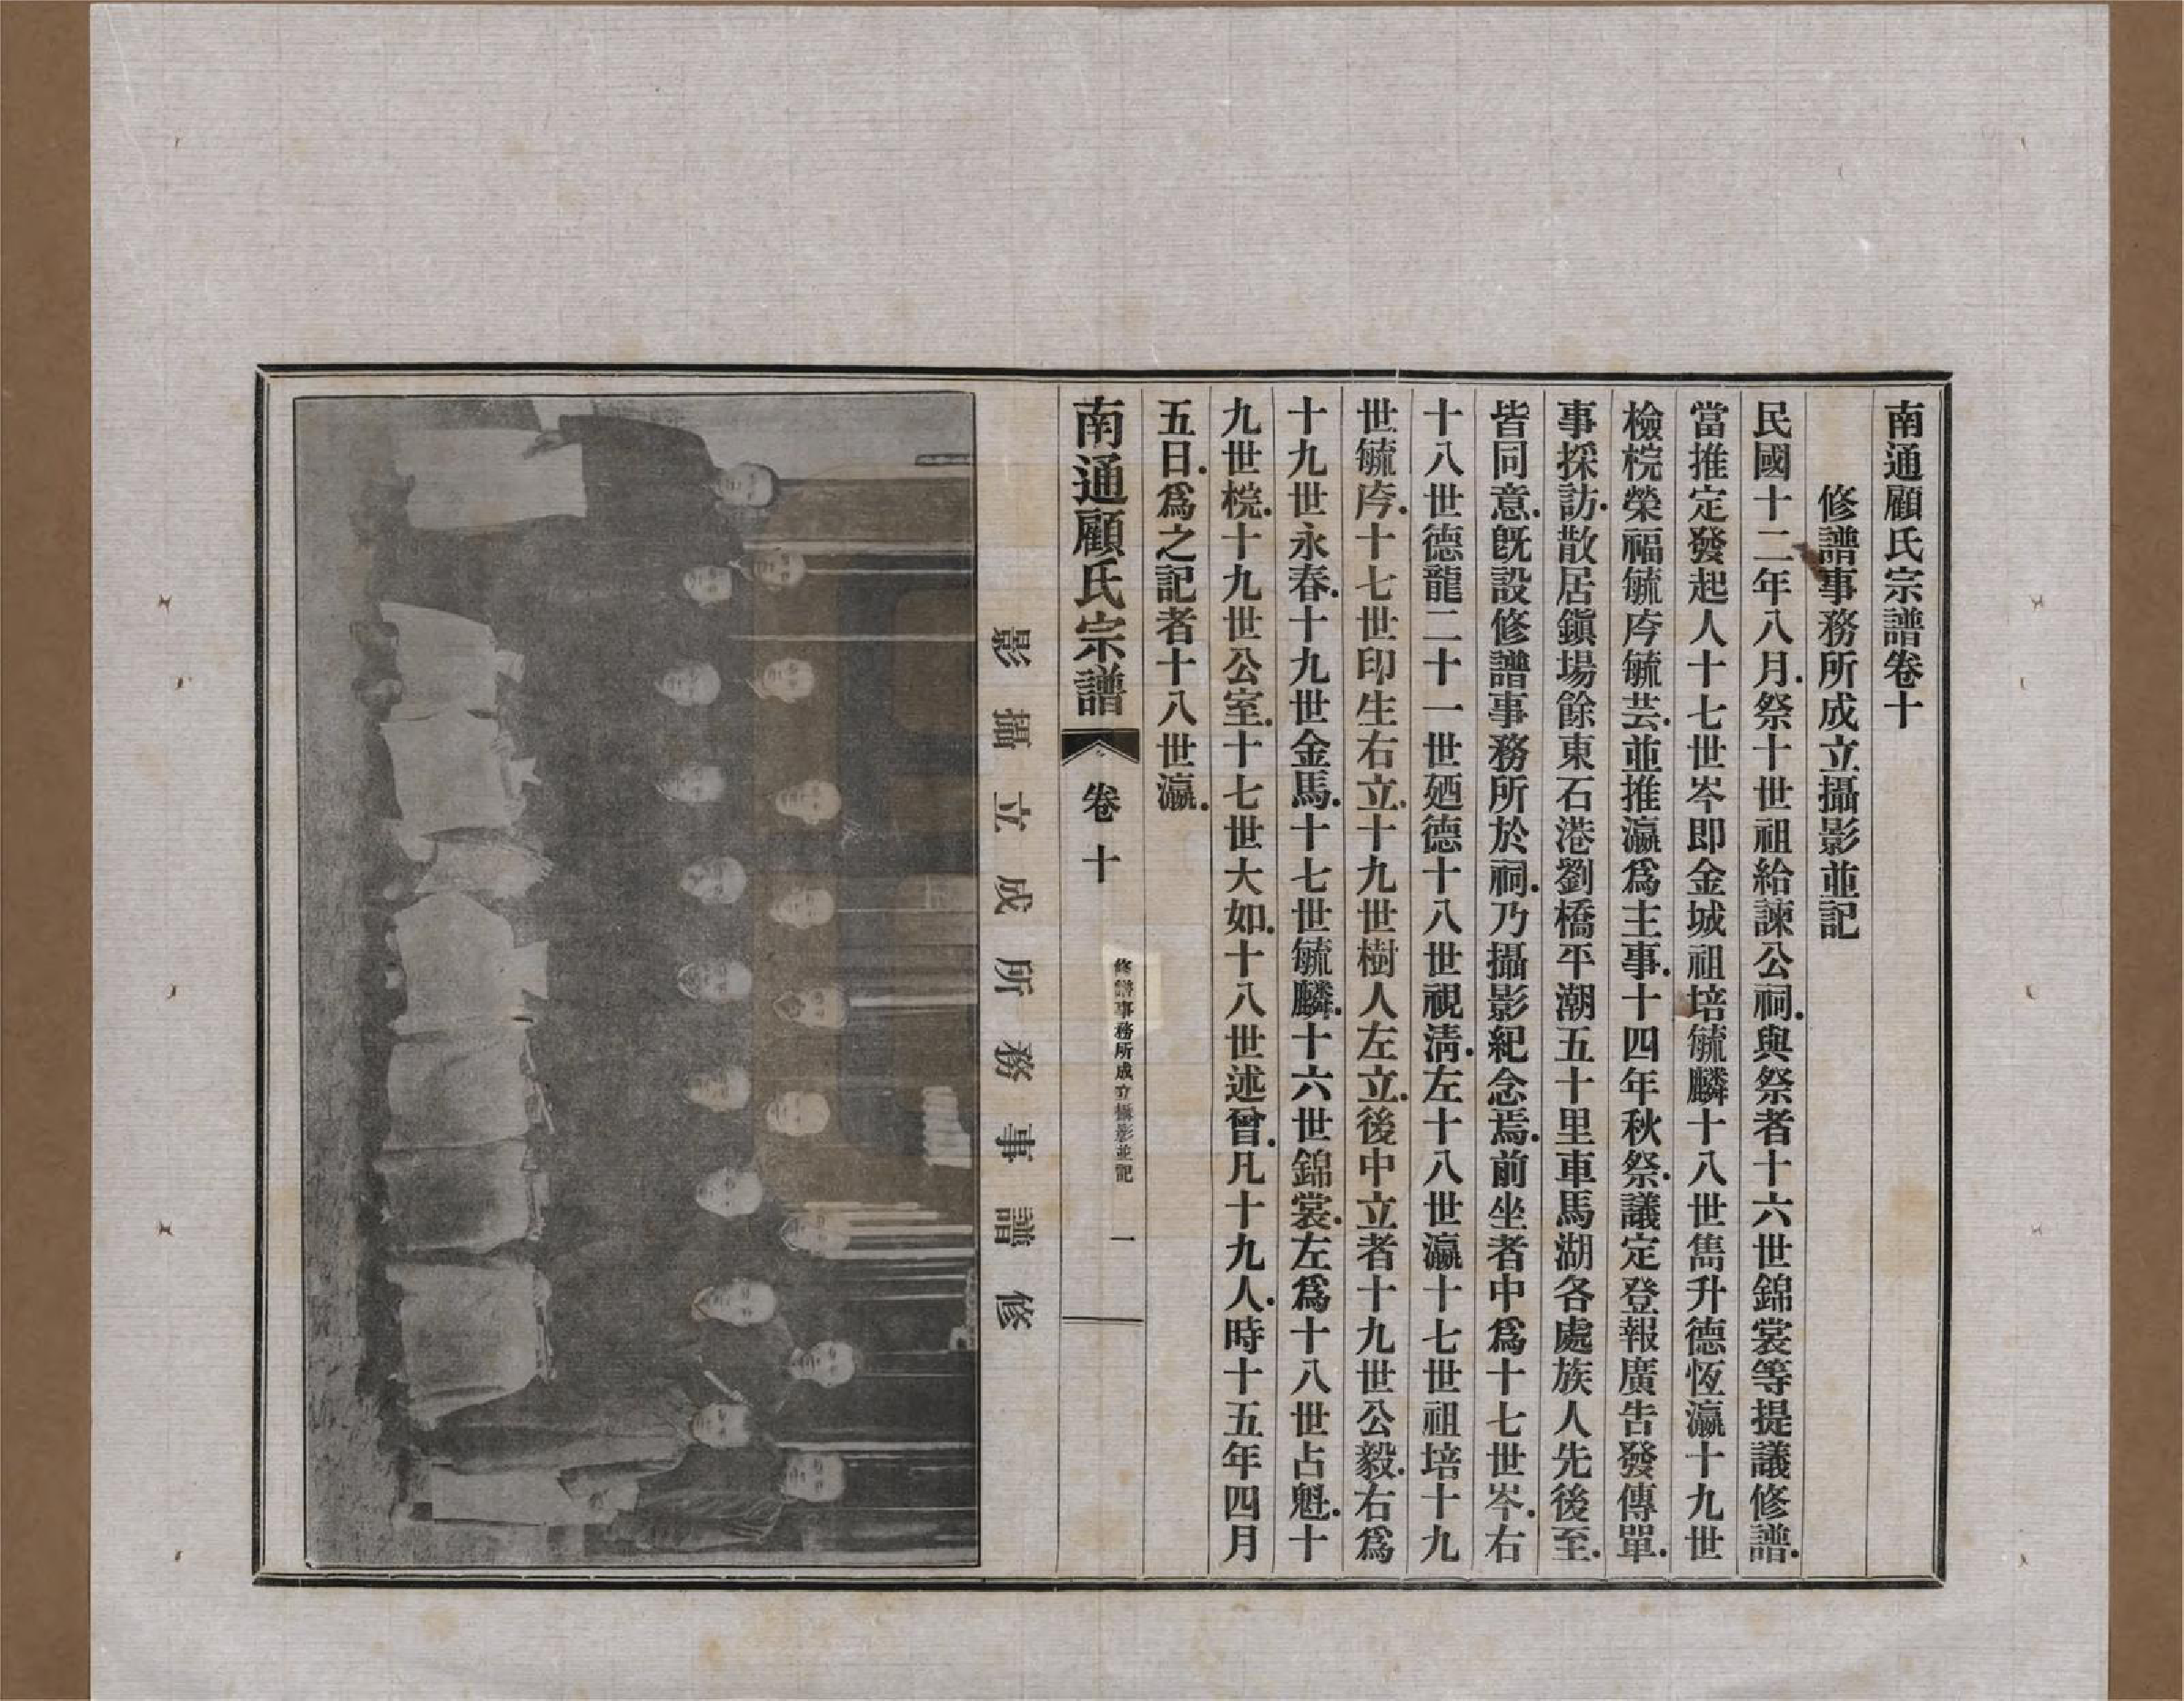 南通顧氏宗譜卷十
修譜事務所成立攝影並記
民國十二年八月.祭十世祖給諫公祠.與祭者十六世錦裳等提議修譜.
當推定發起人十七世岑即金城祖培毓麟十八世雋升德恆瀛十九世
檢梡榮福毓庈毓芸.並推瀛爲主事.十四年秋祭.議定登報廣告發傳單.
事採訪.散居鎭場餘東石港劉橋平潮五十里車馬湖各處族人先後至.
皆同意.旣設修譜事務所於祠.乃攝影紀念焉.前坐者中爲十七世岑.右
十八世德龍二十一世廼德十八世視淸.左十八世瀛十七世祖培十九
世毓庈.十七世印生右立.十九世樹人左立.後中立者十九世公毅.右爲
十九世永春.十九世金馬.十七世毓麟.十六世錦裳.左爲十八世占魁.十
九世梡.十九世公室.十七世大如.十八世述曾.凡十九人.時十五年四月
五日.爲之記者十八世瀛.
南通顧氏宗譜 卷十 修譜事務所成立攝影並記 一
修譜事務所成立攝影